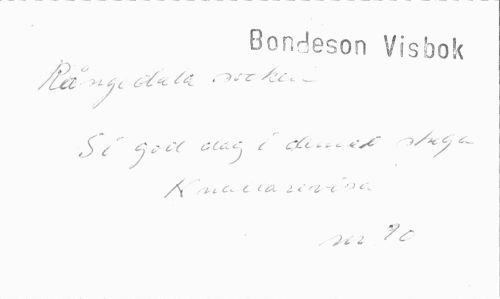 Bondeson Visbok
Rångedala socken
Si god dag i denna stuga
Knallarevisa
nr 90